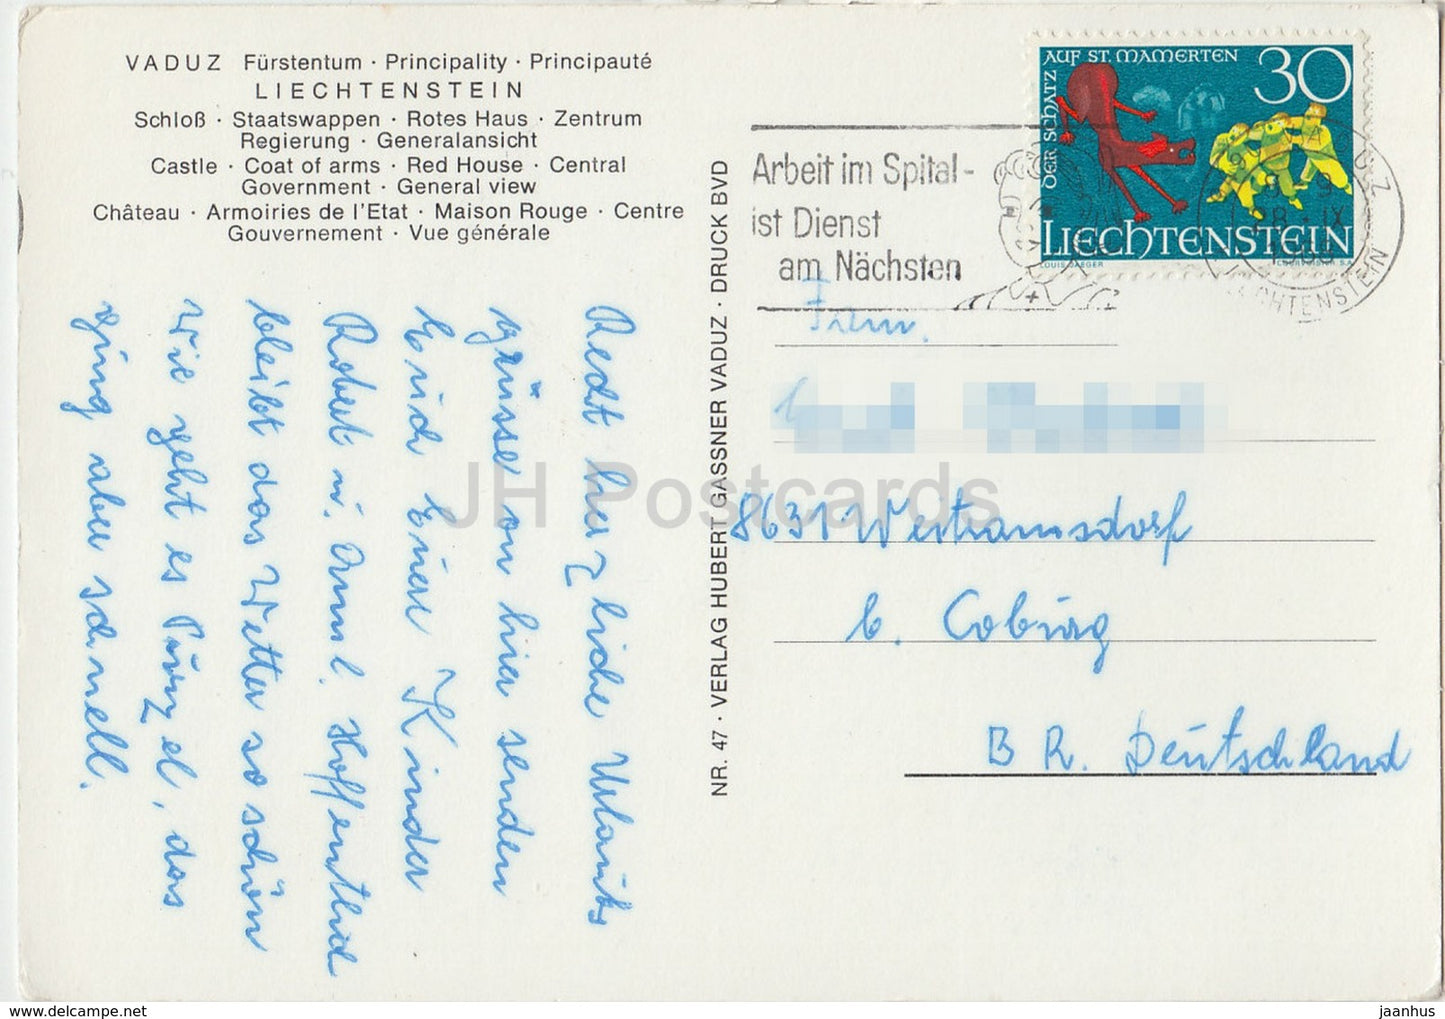 VADUZ Fürstentum · Principality · Principauté
LIECHTENSTEIN
Schloß · Staatswappen · Rotes Haus · Zentrum
Regierung · Generalansicht
Castle · Coat of arms · Red House · Central
Government · General view
Château · Armoiries de l'Etat · Maison Rouge · Centre
Gouvernement · Vue générale
Recht herzliche Urlaubs
grüsse von hier senden
Euch Eure Kinder
Robert u. Anml. Hoffentlich
bleibt das Wetter so schön
Wie geht es Purzel, das
ging aber schnell.
NR. 47 · VERLAG HUBERT GASSNER VADUZ · DRUCK BVD
Arbeit im Spital -
ist Dienst
am Nächsten
DER SCHATZ
AUF ST. MAMERTEN
30
LIECHTENSTEIN
LOUIS JAEGER
COURVOISIER S.A.
VADUZ
28. IX
1968
LIECHTENSTEIN
Fam.
8631 Weitramsdorf
b. Coburg
B R. Deutschland
JH Postcards
www.delcampe.net
jaanhus